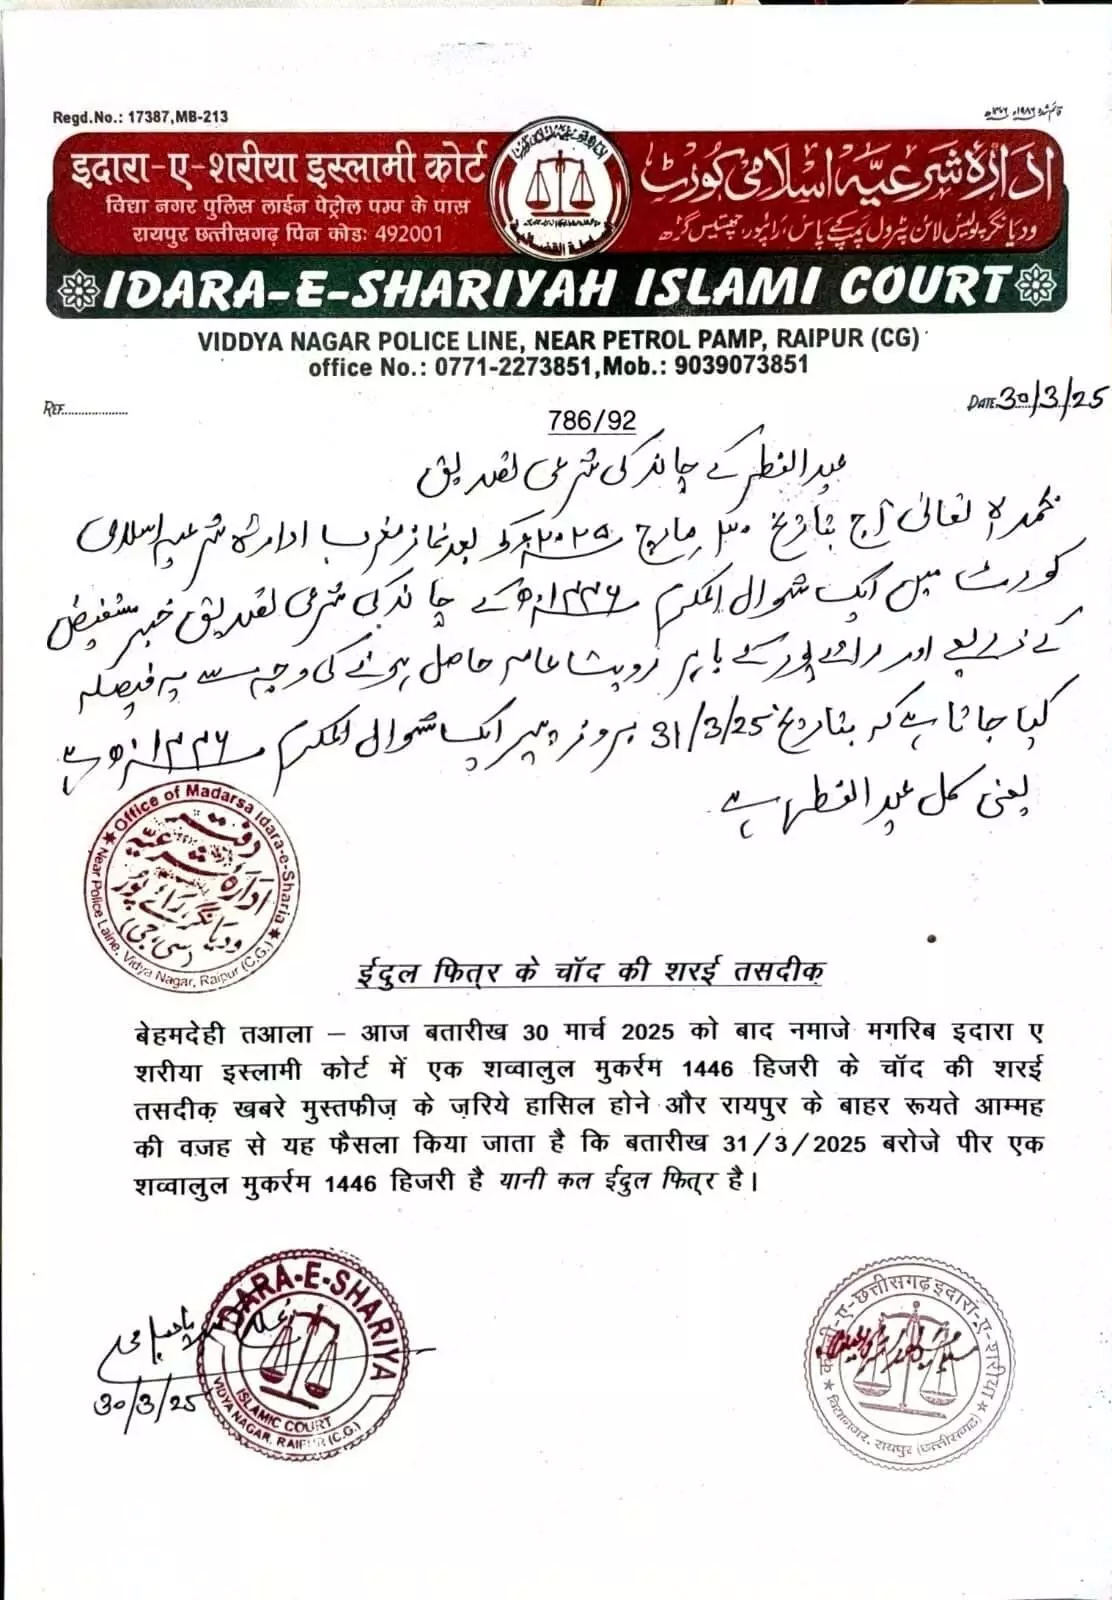 Regd.No.: 17387,MB-213
इदारा-ए-शरीया इस्लामी कोर्ट
विद्या नगर पुलिस लाईन पेट्रोल पम्प के पास
रायपुर छत्तीसगढ़ पिन कोड: 492001
ادارۂ شرعیہ اسلامی کورٹ
ودیا نگر پولیس لائن پٹرول پمپ کے پاس، رائپور، چھتیس گڑھ
IDARA-E-SHARIYAH ISLAMI COURT
VIDDYA NAGAR POLICE LINE, NEAR PETROL PAMP, RAIPUR (CG)
office No.: 0771-2273851,Mob.: 9039073851
REF..................
DATE 30/3/25
786/92
عید الفطر کے چاند کی شرعی تصدیق
بحمدہ تعالیٰ آج بتاریخ ۳۰ مارچ ۲۰۲۵ء کو بعد نماز مغرب ادارۂ شرعیہ اسلامی
کورٹ میں ایک شوال المکرم ۱۴۴۶ھ کے چاند کی شرعی تصدیق خبر مستفیض
کے ذریعے اور رائے پور کے باہر رویت عامہ حاصل ہونے کی وجہ سے یہ فیصلہ
کیا جاتا ہے کہ بتاریخ 31/3/25 بروز پیر ایک شوال المکرم ۱۴۴۶ھ ہے
یعنی کل عید الفطر ہے
Office of Madarsa Idara-e-Sharia
دفتر
ادارۂ شرعیہ
ودیا نگر رائے پور
(سی جی)
Near Police Laine, Vidya Nagar, Raipur (C.G.)
ईदुल फित्र के चॉद की शरई तसदीक़
बेहमदेही तआला – आज बतारीख 30 मार्च 2025 को बाद नमाजे मगरिब इदारा ए
शरीया इस्लामी कोर्ट में एक शव्वालुल मुकर्रम 1446 हिजरी के चॉद की शरई
तसदीक़ खबरे मुस्तफीज़ के ज़रिये हासिल होने और रायपुर के बाहर रूयते आम्मह
की वज़ह से यह फैसला किया जाता है कि बतारीख 31/3/2025 बरोजे पीर एक
शव्वालुल मुकर्रम 1446 हिजरी है यानी कल ईदुल फित्र है।
IDARA-E-SHARIYA
ISLAMIC COURT
VIDYA NAGAR, RAIPUR (C.G.)
30/3/25
छत्तीसगढ़ इदारा-ए-शरीया
विद्यानगर, रायपुर (छत्तीसगढ़)